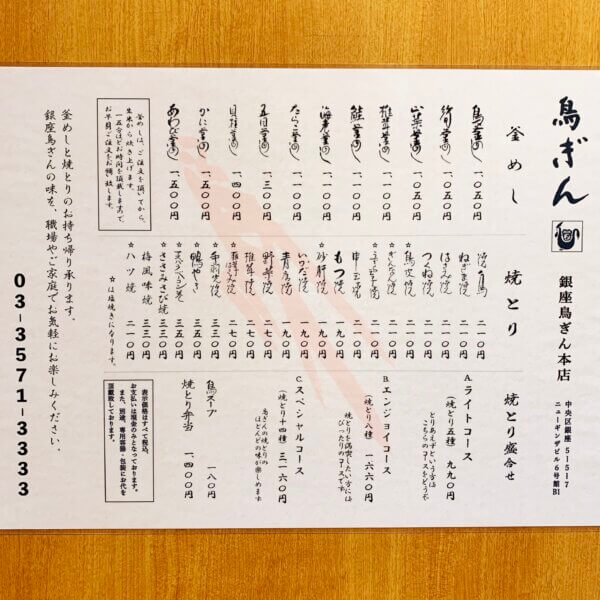 鳥ぎん
銀座鳥ぎん本店
中央区銀座 5-5-7
ニューギンザビル6号館B1
釜めし
鳥釜めし 一、〇五〇円
竹の子釜めし 一、〇五〇円
山菜釜めし 一、〇五〇円
椎茸釜めし 一、一〇〇円
鮭釜めし 一、一〇〇円
海老釜めし 一、一〇〇円
たらこ釜めし 一、一〇〇円
五目釜めし 一、三〇〇円
貝柱釜めし 一、四〇〇円
かに釜めし 一、五〇〇円
あわび釜めし 一、五〇〇円
釜めしは、ご注文を頂いてから、
生米から炊き上げます。
一五分ほどお時間を頂戴しますので、
お早目にご注文をお願い致します。
焼とり
二一〇円
ねぎま焼 二一〇円
はさみ焼 二一〇円
つくね焼 二一〇円
☆鳥皮焼 二一〇円
ぎんなん焼 二一〇円
二一〇円
一九〇円
もつ焼 一九〇円
☆砂肝焼 一九〇円
いかだ焼 一九〇円
青唐焼 一九〇円
野菜焼 二七〇円
椎茸焼 二七〇円
二七〇円
☆手羽焼 二七〇円
鴨やき 三五〇円
三五〇円
☆ささみさび焼 三三〇円
梅風味焼 三三〇円
☆ハツ焼 二一〇円
☆は塩焼きになります。
焼とり盛合せ
A ライトコース
(焼とり五種) 九九〇円
とりあえずという方は
こちらのコースをどうぞ
B エンジョイコース
(焼とり八種) 一六六〇円
焼とりを満喫したい方には
ぴったりのコースです
C スペシャルコース
(焼とり十四種) 三一六〇円
鳥ぎんの焼とりの
ほとんどの味が楽しめます
鳥スープ 一八〇円
焼とり弁当 一、四〇〇円
表示価格はすべて税込、
お支払いは現金のみとなっております。
また、別途、専用容器・包装にお代を
頂戴致しております。
釜めしと焼とりのお持ち帰り承ります。
銀座鳥ぎんの味を、職場やご家庭でお気軽にお楽しみください。
03-3571-3333